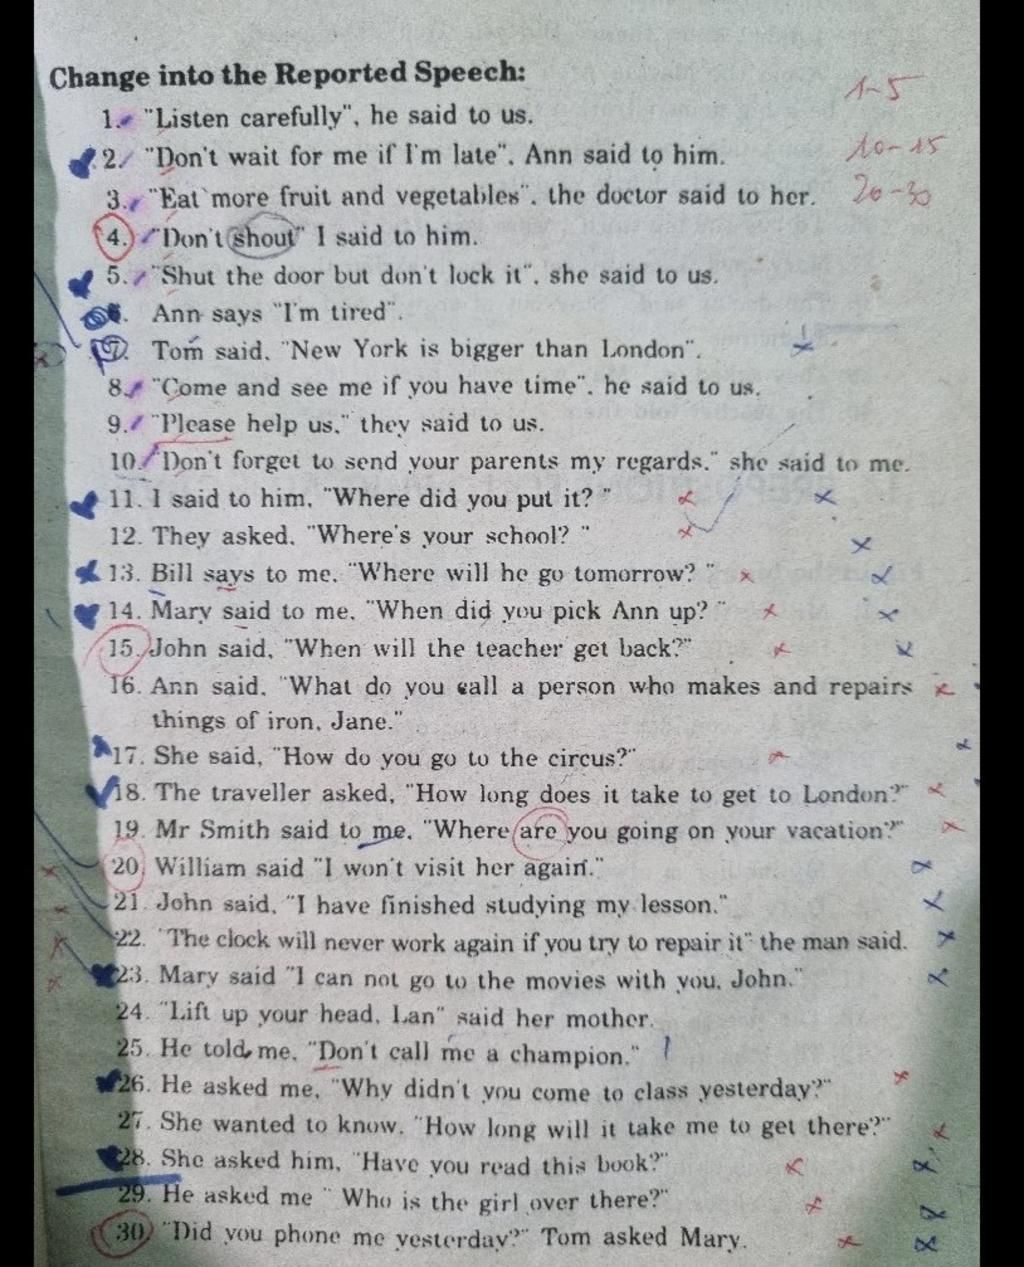 Change into the Reported Speech:
1-5
1. "Listen carefully", he said to us.
2. "Don't wait for me if I'm late". Ann said to him.
10-15
3. "Eat more fruit and vegetables". the doctor said to her.
20-30
4. "Don't shout" I said to him.
5. "Shut the door but don't lock it". she said to us.
6. Ann says "I'm tired".
7. Tom said. "New York is bigger than London".
8. "Come and see me if you have time". he said to us.
9. "Please help us," they said to us.
10. "Don't forget to send your parents my regards." she said to me.
11. I said to him. "Where did you put it? "
12. They asked. "Where's your school? "
13. Bill says to me. "Where will he go tomorrow? "
14. Mary said to me. "When did you pick Ann up? "
15. John said, "When will the teacher get back?"
16. Ann said. "What do you call a person who makes and repairs
things of iron, Jane."
17. She said, "How do you go to the circus?"
18. The traveller asked, "How long does it take to get to London?"
19. Mr Smith said to me. "Where are you going on your vacation?"
20. William said "I won't visit her again."
21. John said, "I have finished studying my lesson."
22. "The clock will never work again if you try to repair it" the man said.
23. Mary said "I can not go to the movies with you, John."
24. "Lift up your head, Lan" said her mother.
25. He told me, "Don't call me a champion."
26. He asked me, "Why didn't you come to class yesterday?"
27. She wanted to know. "How long will it take me to get there?"
28. She asked him, "Have you read this book?"
29. He asked me " Who is the girl over there?"
30. "Did you phone me yesterday?" Tom asked Mary.